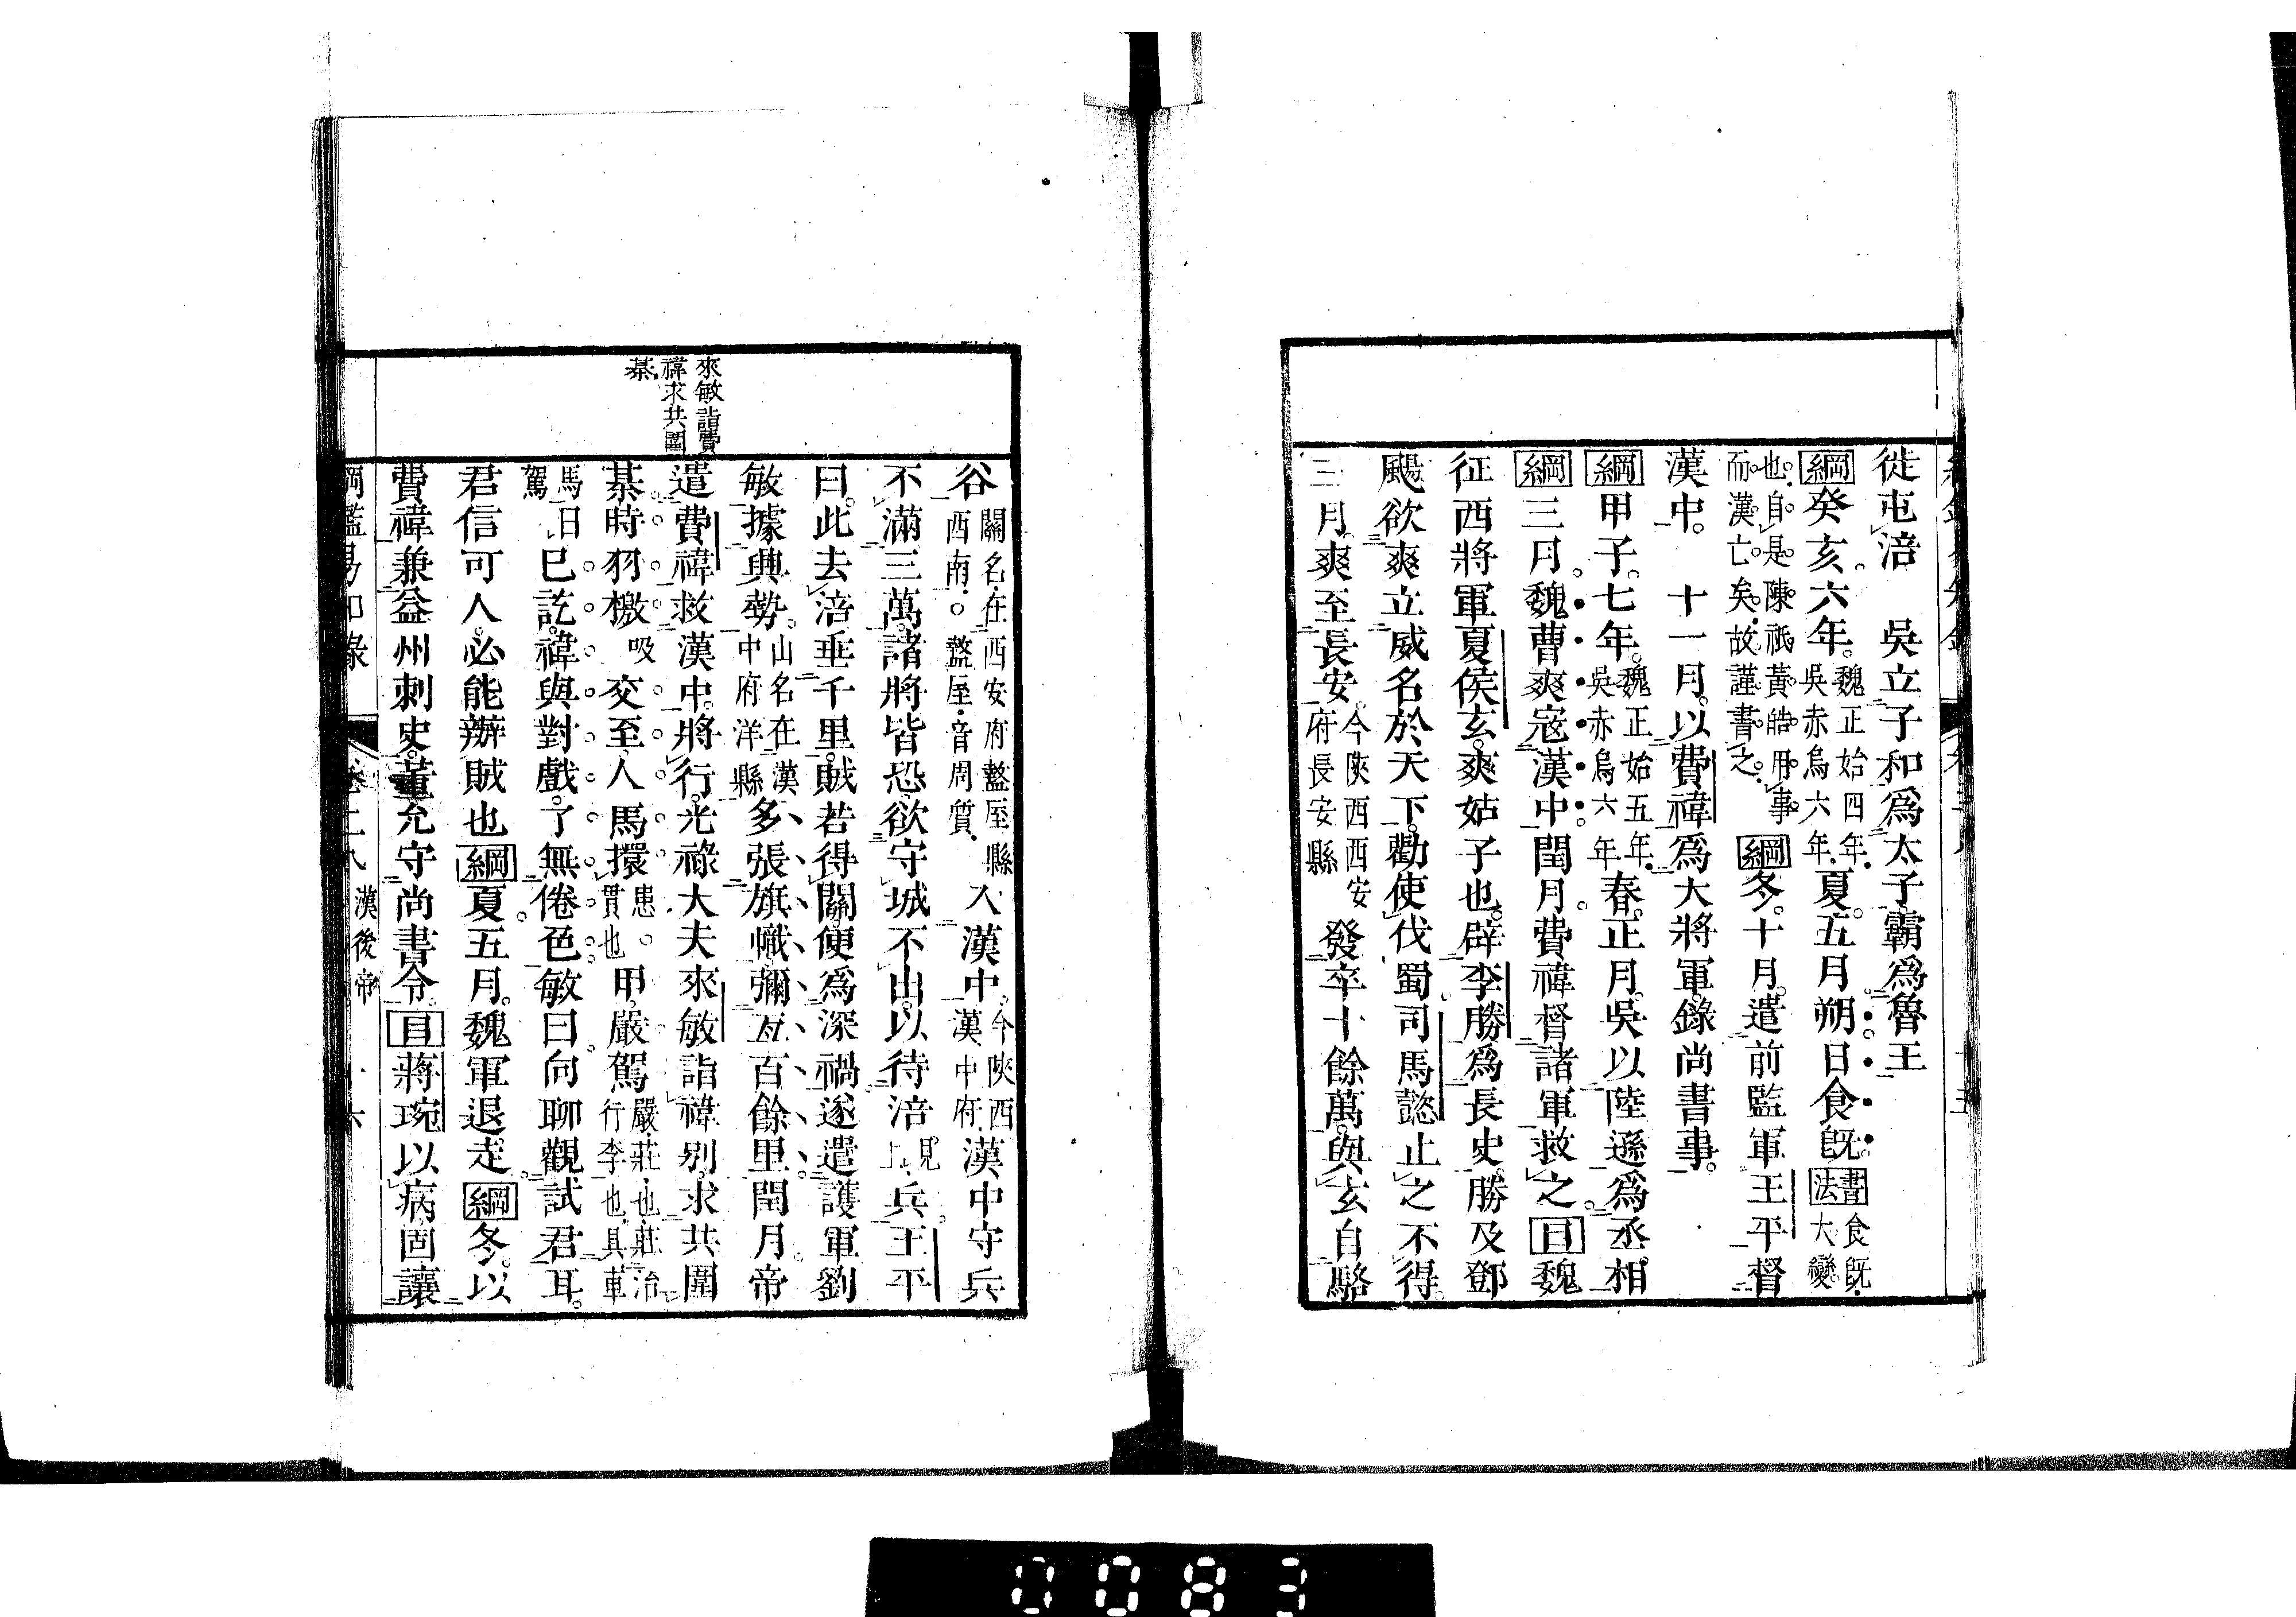 徙屯涪　吳立子和爲太子霸爲魯王
綱癸亥六年。魏正始四年吳赤烏六年夏五月朔日食旣書法食旣大變
也自是陳祇黃皓用事而漢亡矣故謹書之綱冬十月遣前監軍王平督
漢中。　十一月以費禕爲大將軍錄尚書事。
綱甲子七年。魏正始五年吳赤烏六年春正月吳以陸遜爲丞相
綱三月魏曹爽寇漢中閏月費禕督諸軍救之目魏
征西將軍夏侯玄爽姑子也辟李勝爲長史勝及鄧
颺欲爽立威名於天下勸使伐蜀司馬懿止之不得
三月爽至長安今陝西西安府長安縣發卒十餘萬與玄自駱
谷關名在西安府盩厔縣西南。盩厔音周質入漢中今陝西漢中府漢中守兵
不滿三萬諸將皆恐欲守城不出以待涪見上兵王平
曰此去涪垂千里賊若得關便爲深禍遂遣護軍劉
敏據興勢山名在漢中府洋縣多張旗幟彌亙百餘里閏月帝
遣費禕救漢中將行光祿大夫來敏詣禕別求共圍
棊時羽檄吸交至人馬擐患貫也甲嚴駕嚴莊也莊治行李也具車
馬曰駕已訖禕與對戲了無倦色敏曰向聊觀試君耳。
君信可人必能辦賊也綱夏五月魏軍退走綱冬以
費禕兼益州刺史董允守尚書令目蔣琬以病固讓
來敏詣費
禕求共圍
棊
綱鑑易知錄　卷二八　漢後帝　六